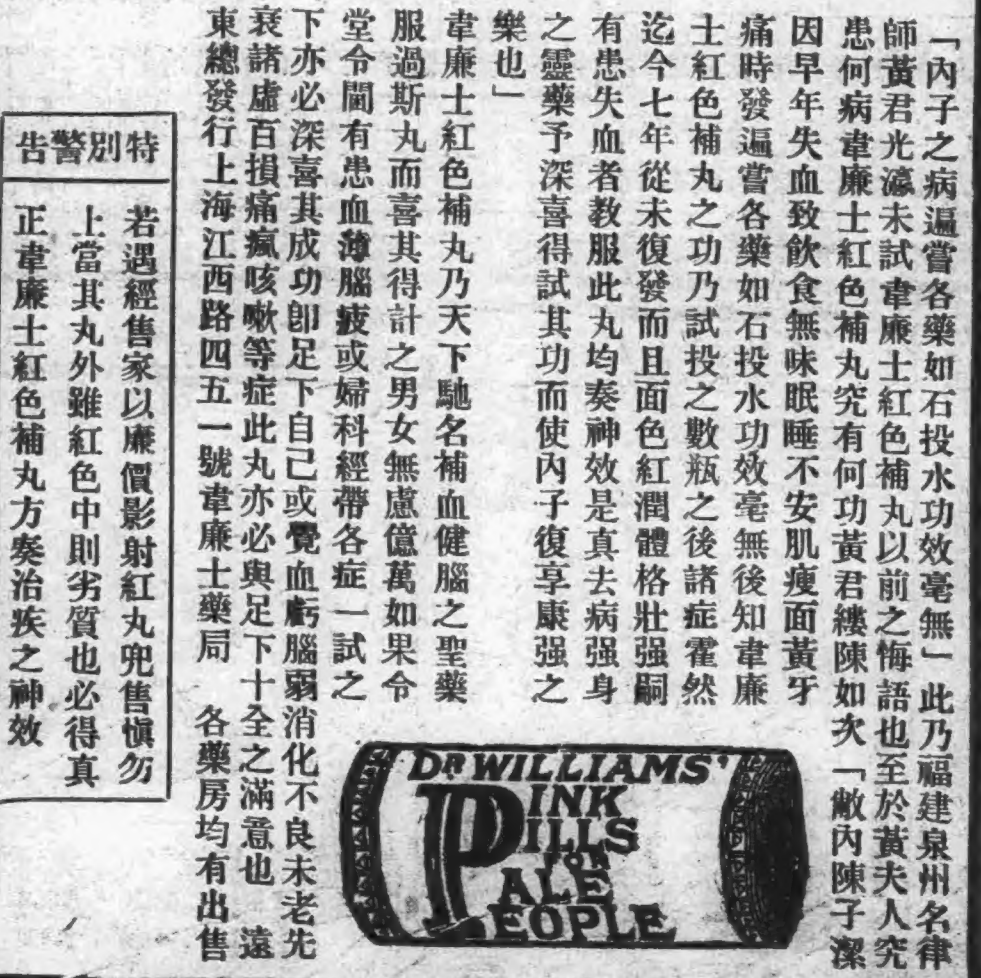 「內子之病遍嘗各藥如石投水功效毫無」此乃福建泉州名律
師黃君光瀛未試韋廉士紅色補丸以前之悔語也至於黃夫人究
患何病韋廉士紅色補丸究有何功黃君縷陳如次「敝內陳子潔
因早年失血致飲食無味眠睡不安肌瘦面黃牙
痛時發遍嘗各藥如石投水功效毫無後知韋廉
士紅色補丸之功乃試投之數瓶之後諸症霍然
迄今七年從未復發而且面色紅潤體格壯强嗣
有患失血者教服此丸均奏神效是真去病强身
之靈藥予深喜得試其功而使內子復享康强之
樂也」
韋廉士紅色補丸乃天下馳名補血健腦之聖藥
服過斯丸而喜其得計之男女無慮億萬如果令
堂令閫有患血薄腦疲或婦科經帶各症一試之
下亦必深喜其成功卽足下自己或覺血虧腦弱消化不良未老先
衰諸虛百損痛瘋咳嗽等症此丸亦必與足下十全之滿意也 遠
東總發行上海江西路四五一號韋廉士藥局 各藥房均有出售
DR WILLIAMS'
PINK
PILLS
FOR
PALE
PEOPLE
特別警告
若遇經售家以廉價影射紅丸兜售愼勿
上當其丸外雖紅色中則劣質也必得真
正韋廉士紅色補丸方奏治疾之神效